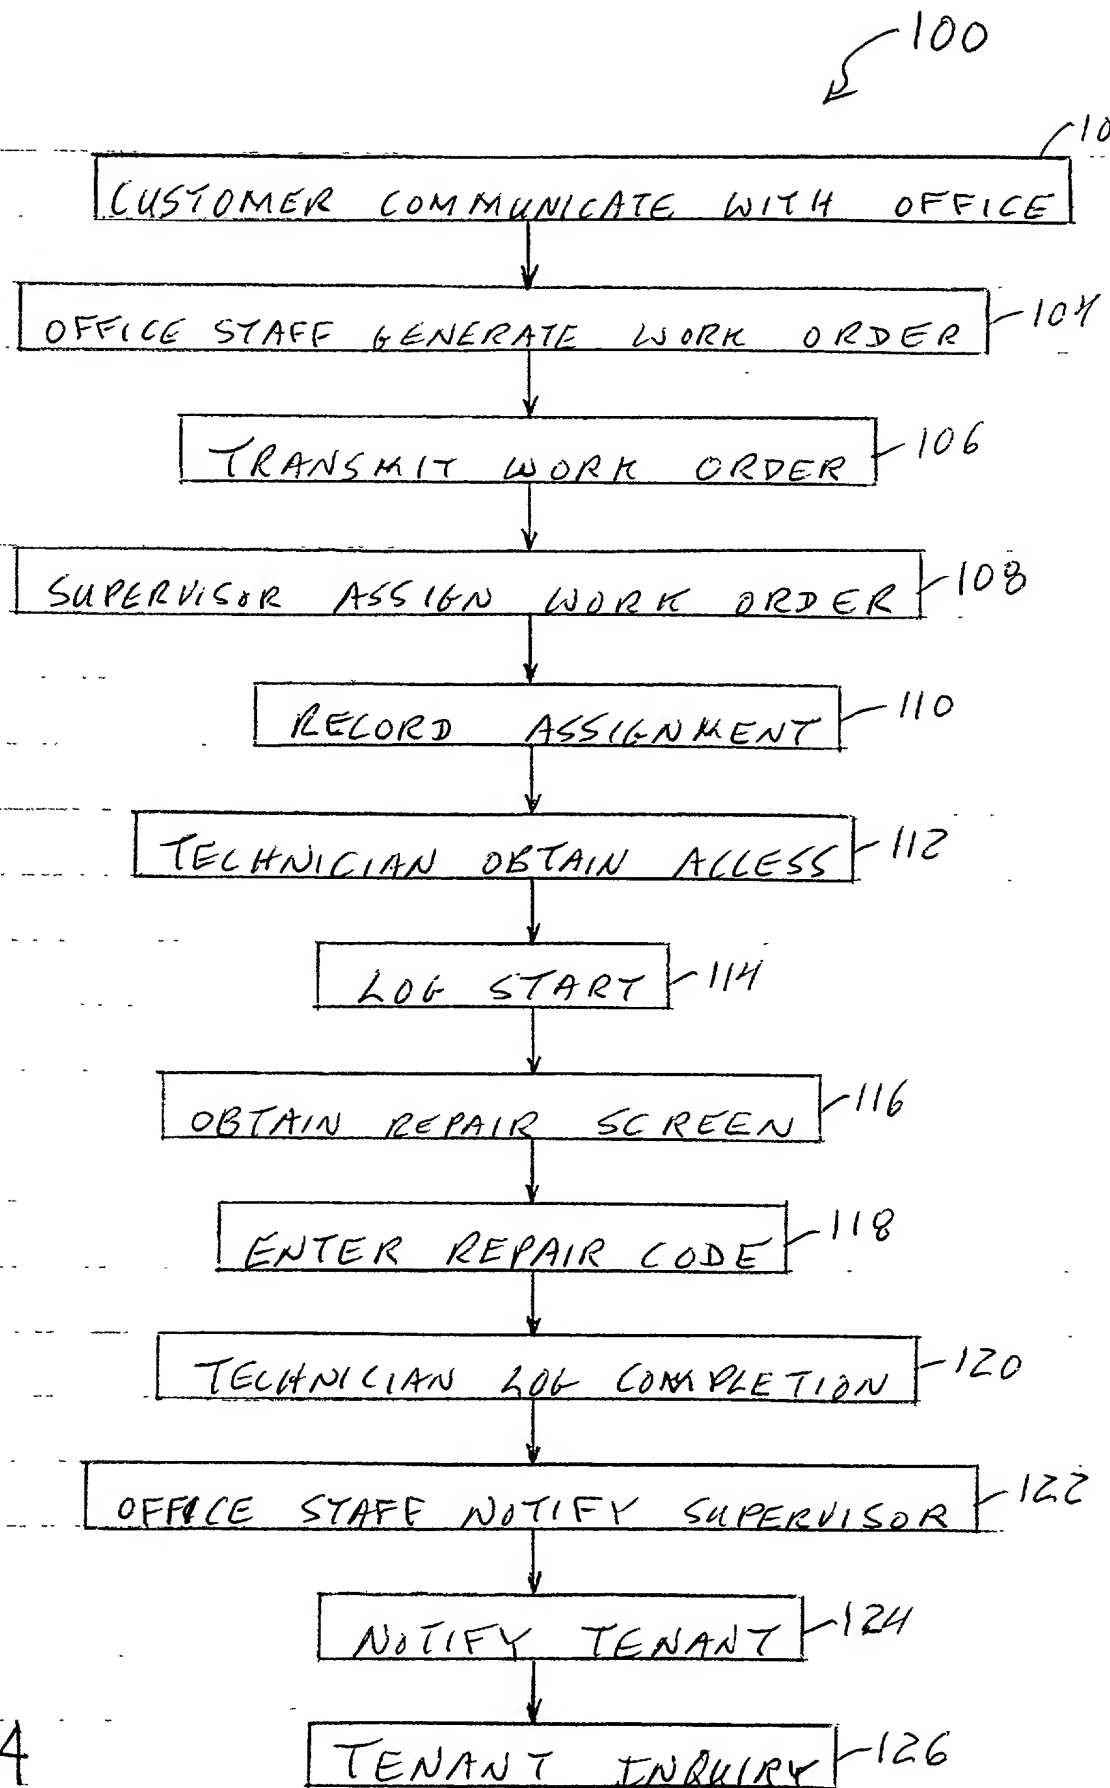 100
CUSTOMER COMMUNICATE WITH OFFICE
OFFICE STAFF GENERATE WORK ORDER 104
TRANSMIT WORK ORDER 106
SUPERVISOR ASSIGN WORK ORDER 108
RECORD ASSIGNMENT 110
TECHNICIAN OBTAIN ACCESS 112
LOG START 114
OBTAIN REPAIR SCREEN 116
ENTER REPAIR CODE 118
TECHNICIAN LOG COMPLETION 120
OFFICE STAFF NOTIFY SUPERVISOR 122
NOTIFY TENANT 124
4
TENANT INQUIRY 126